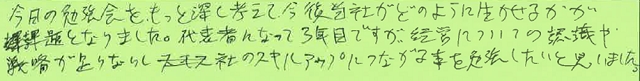 今日の勉強会をもっと深く考えて、今後当社がどのように生かせるかが
課題となりました。代表者になって3年目ですが、経営についての認識や
戦略が足りないし 社のスキルアップにつながる事を勉強したいと思いました。